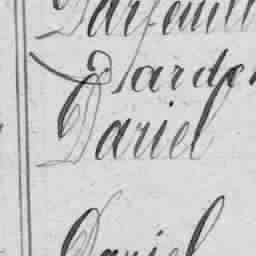 Darfeuill
Darde
Dariel
Dariel